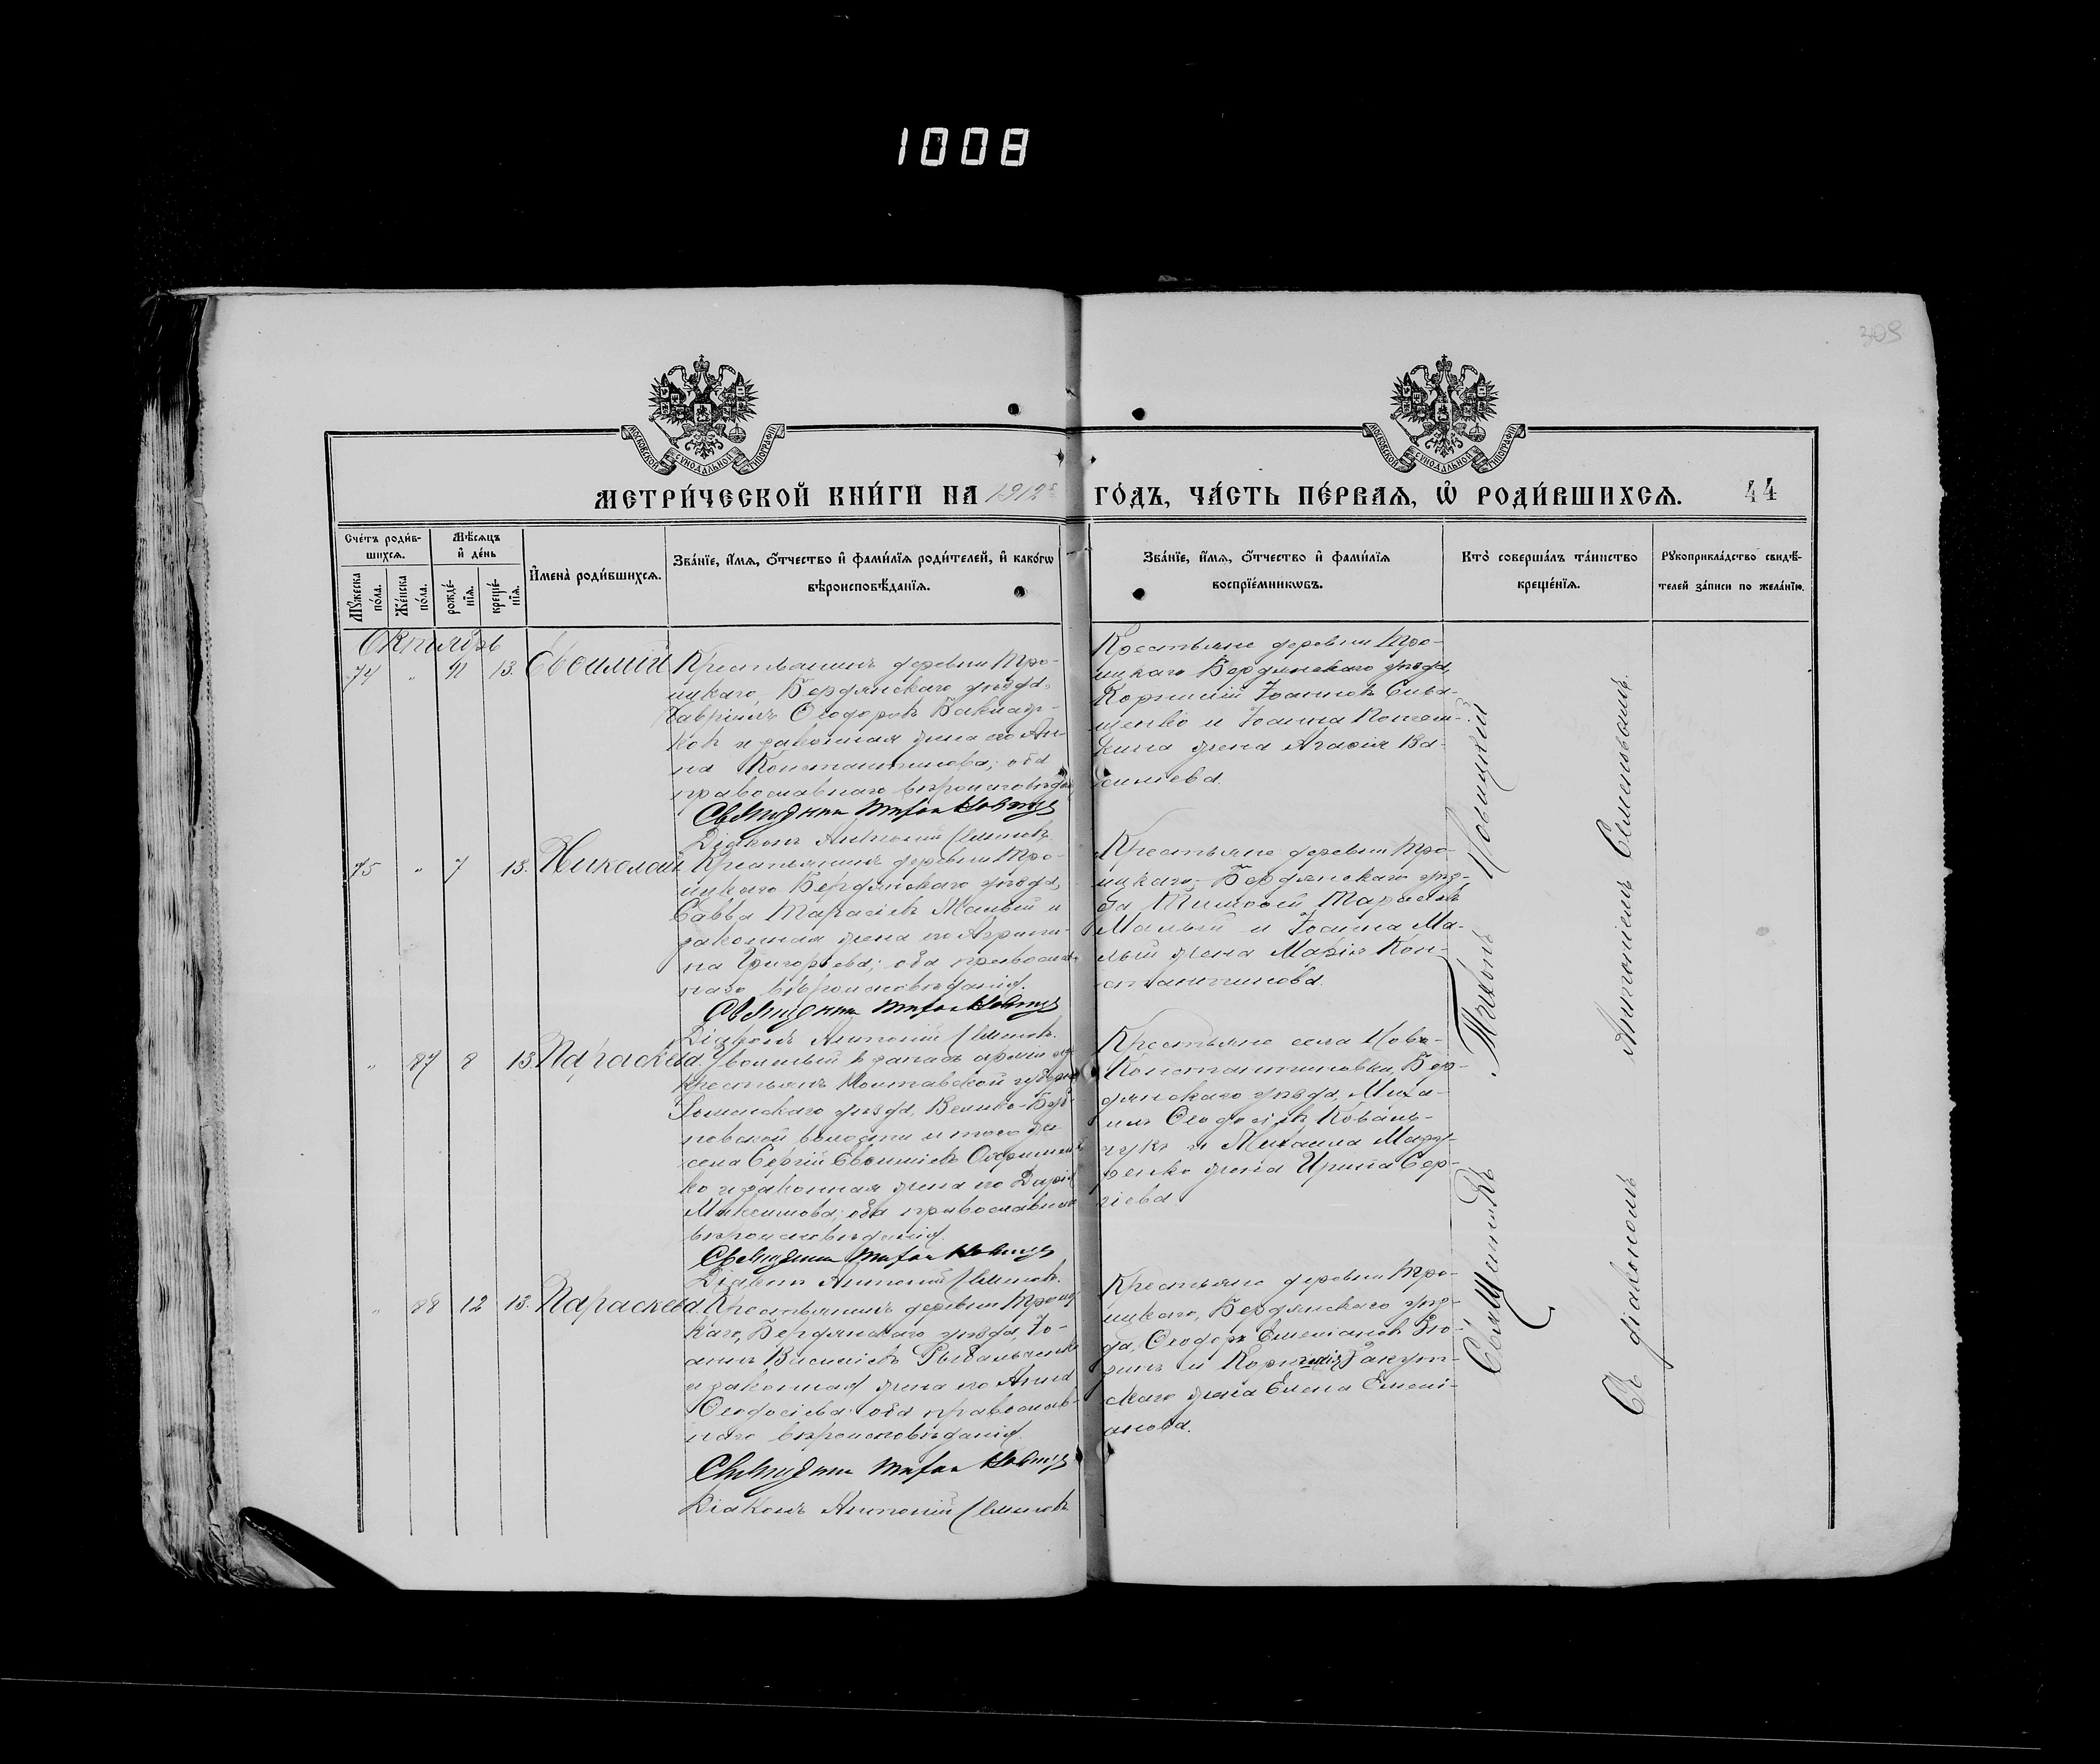 1008
309
МОСКОВСКОЙ СѴНОДАЛЬНОЙ ТИПОГРАФІИ
МОСКОВСКОЙ СѴНОДАЛЬНОЙ ТИПОГРАФІИ
МЕТРИ́ЧЕСКОЙ КНИ́ГИ НА 1912 ГО́ДЪ, ЧА́СТЬ ПЕ́РВАЯ, Ѡ҆ РОДИ́ВШИХСЯ. 44
Сче́тъ роди́вшихся.
Му́жеска по́ла.
Же́нска по́ла.
Мѣ́сяцъ и҆ де́нь
рожде́нїя.
креще́нїя.
И҆мена̀ роди́вшихся.
Зва́нїе, и҆́мя, ѻ҆́тчество и҆ фами́лїя роди́телей, и҆ како́гѡ
вѣроисповѣ́данїя.
Зва́нїе, и҆́мя, ѻ҆́тчество и҆ фами́лїя
воспрїе́мникѡвъ.
Кто̀ соверша́лъ та́инство
креще́нїя.
Рꙋкоприкла́дство свидѣ́-
телей за́писи по жела́нїю.
Октябрь
74 " 11 13. Евѳимій
Крестьянинъ деревни Тро-
ицкаго Бердянскаго уѣзда,
Гавріилъ Ѳеодоровъ
и законная жена его Ан-
на Константинова; оба
православнаго вѣроисповѣданія
Священникъ Тихонъ Новицкій
Діаконъ Антоній Семеновъ
Крестьяне деревни Тро-
ицкаго Бердянскаго уѣзда,
Корнилій Іоанновъ Сива-
щенко и Іоанна
жена Агаѳія Ва-
силіева.
75 " 7 13. Николай
Крестьянинъ деревни Тро-
ицкаго Бердянскаго уѣзда,
Савва Тарасіевъ Малый и
законная жена его Агрипи-
на Григорьева; оба православ-
наго вѣроисповѣданія.
Священникъ Тихонъ Новицкій
Діаконъ Антоній Семеновъ
Крестьяне деревни Тро-
ицкаго, Бердянскаго уѣз-
да Тимоѳей Тарасіевъ
Малый и Іоанна Ма-
лый жена Марія Кон-
стантинова.
" 87 8 13. Параскева
Уволенный въ запасъ арміи изъ
крестьянъ Полтавской губерніи
уѣзда, Велико-
волости и того же
села Сергій Евѳиміевъ
и законная жена его Дарія
Максимова; оба православнаго
вѣроисповѣданія.
Священникъ Тихонъ Новицкій
Діаконъ Антоній Семеновъ
Крестьяне села Ново-
Константиновки, Бер-
дянскаго уѣзда, Миха-
илъ Ѳеодосіевъ Коваль-
чукъ и Михаила
жена Ирина Сер-
гіева.
" 88 12 13. Параскева
Крестьянинъ деревни Троиц-
каго, Бердянскаго уѣзда, Іо-
аннъ Василіевъ Рыбальченко
и законная жена его Анна
Ѳеодосіева; оба православ-
наго вѣроисповѣданія.
Священникъ Тихонъ Новицкій
Діаконъ Антоній Семеновъ
Крестьяне деревни Тро-
ицкаго, Бердянскаго уѣз-
да, Ѳеодоръ Емеліановъ
и Корнилія
жена Елена Емелі-
анова.
Священникъ Тихонъ Новицкій
Съ діакономъ Антоніемъ